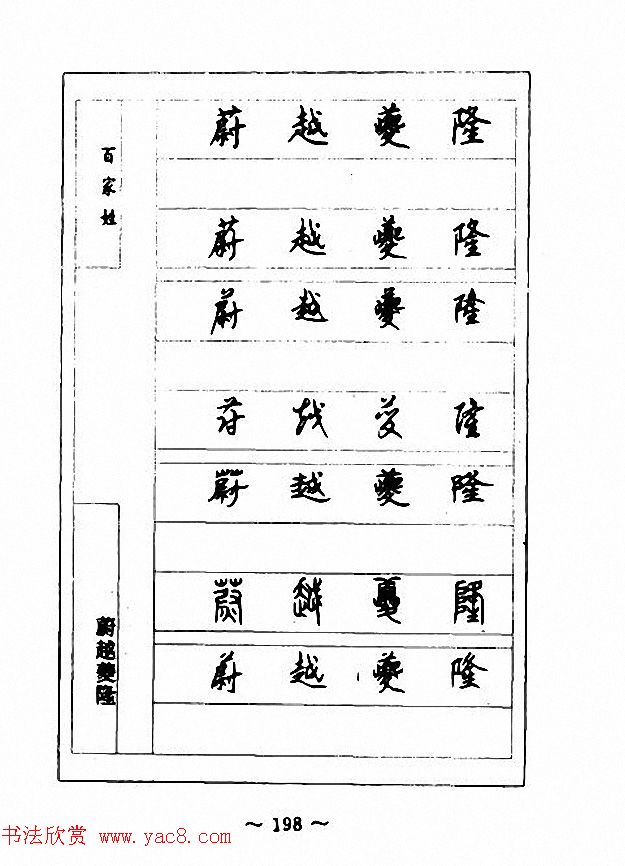 百家姓
蔚越夔隆
蔚 越 夔 隆
蔚 越 夔 隆
蔚 越 夔 隆
蔚 越 夔 隆
蔚 越 夔 隆
蔚 越 夔 隆
蔚 越 夔 隆
~ 198 ~
书法欣赏 www.yac8.com